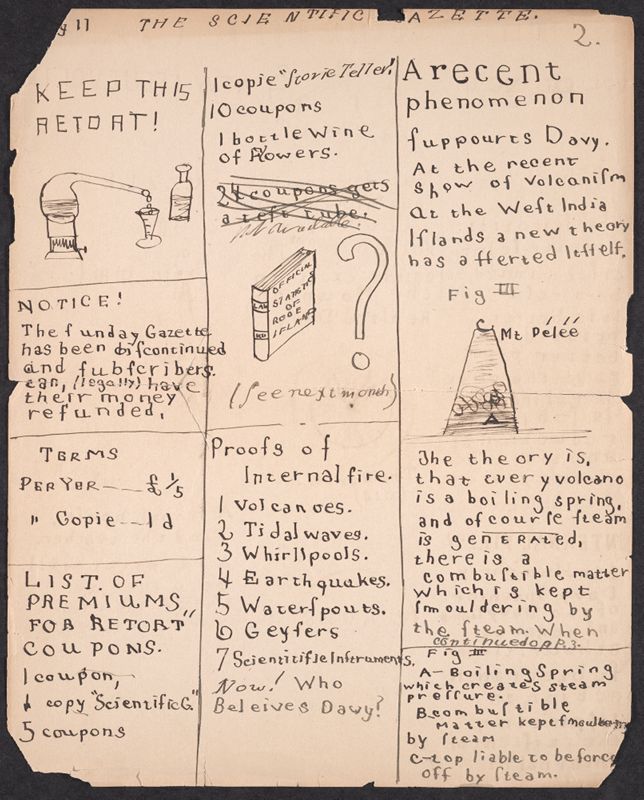 THE SCIENTIFIC GAZETTE.
2.
KEEP THIS
RETORT!
NOTICE!
The ſunday Gazette
has been diſcontinued
and ſubſcribers.
can, (legally) have
their money
refunded.
TERMS
PER YER---£ 1/5
" Copie---1d
LIST. OF
PREMIUMS,,
FOR RETORT
COUPONS.
1 coupon,
1 copy "Scientific G."
5 coupons
1 copie "Storie Teller!
10 coupons
1 bottle Wine
of flowers.
24 coupons gets
a teſt tube.
not available
OFFICIAL
STATISTICS
OF
RODE
IſLAND
?
(See next month)
Proofs of
Internal fire.
1 Volcanoes.
2 Tidal waves.
3 Whirlſpools.
4 Earthquakes.
5 Waterſpouts.
6 Geyſers
7 Scientifiſic Inſtruments.
Now! Who
Beleives Davy?
A recent
phenomenon
ſuppourts Davy.
At the recent
ſhow of Volcaniſm
at the Weſt India
Iſlands a new theory
has aſſerted Itſelf.
Fig III
C
Mt Péléé
B
A
The theory is,
that every volcano
is a boiling ſpring,
and of courſe ſteam
is generated,
there is a
combuſtible matter
which is kept
ſmouldering by
the ſteam. When
continued on P.3.
Fig III
A-Boiling Spring
which creates steam
preſſure.
B combuſtible
matter kept ſmouldering
by ſteam
C-top liable to be forced
off by ſteam.